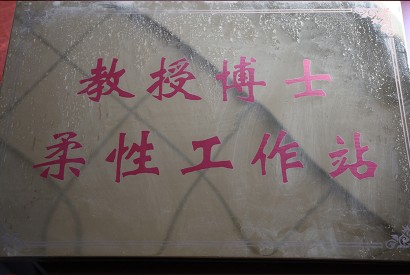 教授博士
柔性工作站